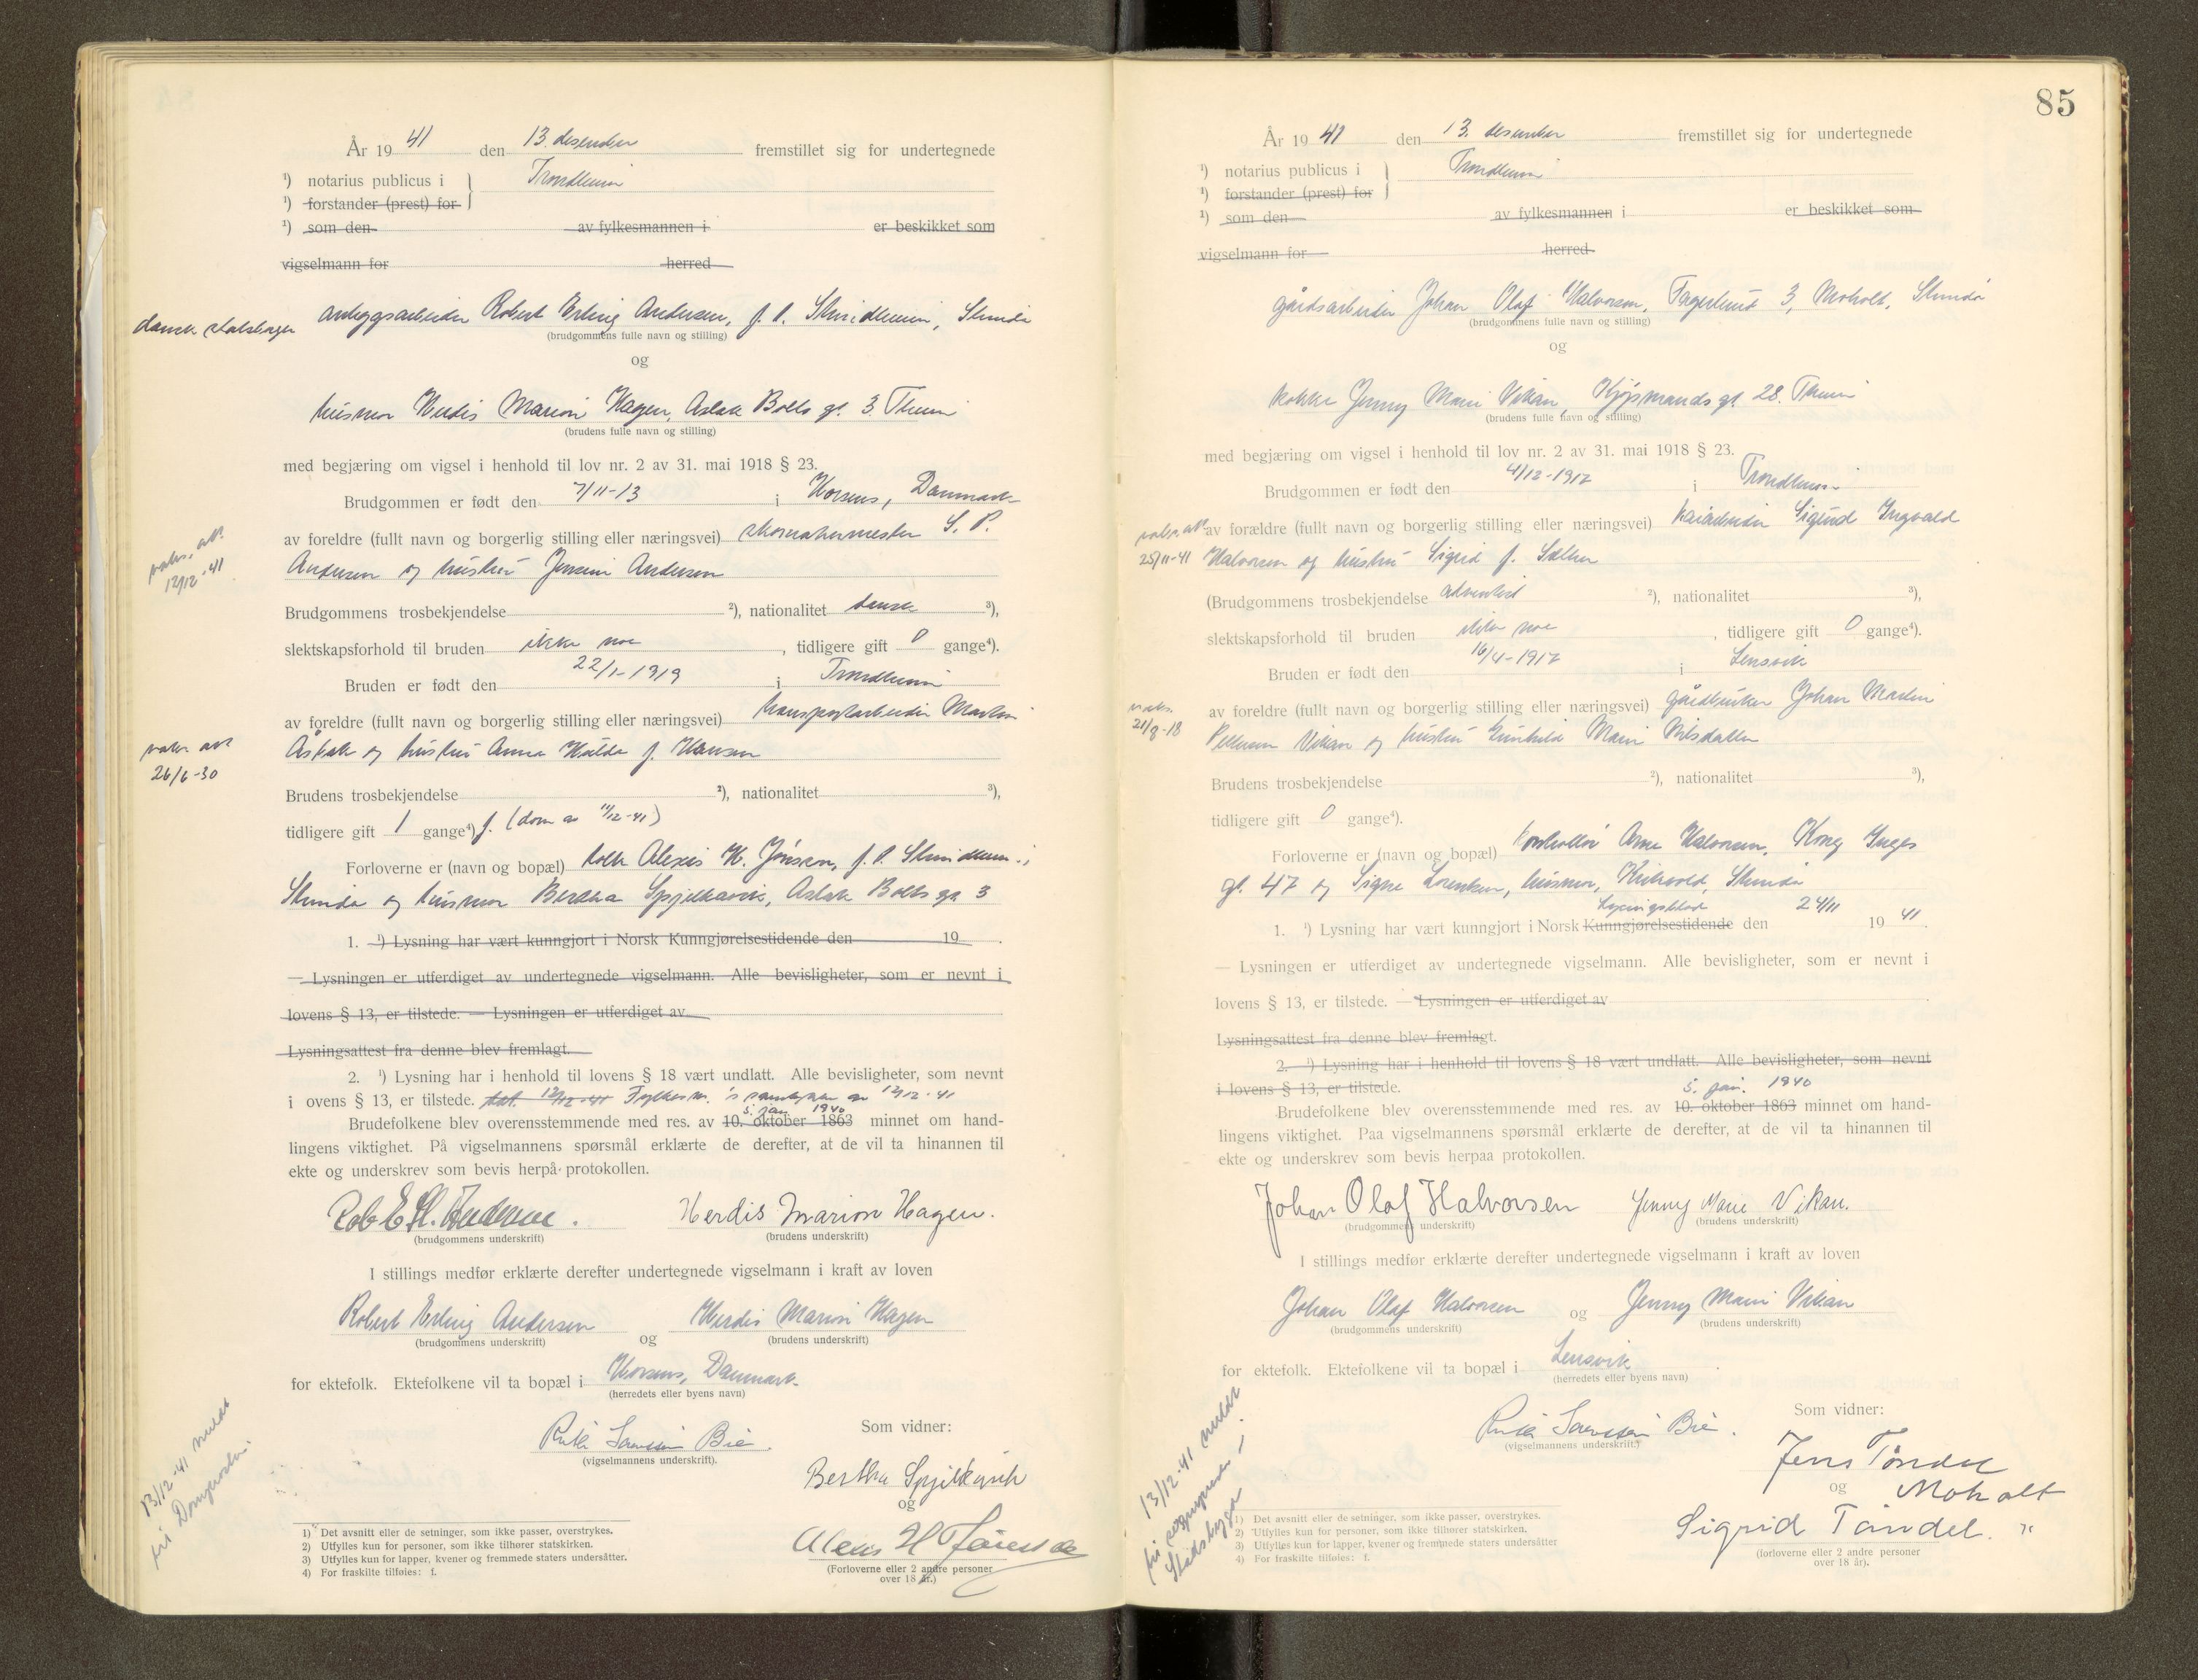 År 19 41 den 13. desember fremstillet sig for undertegnede
¹) notarius publicus i Trondheim
¹) forstander (prest) for
¹) som den av fylkesmannen i er beskikket som
vigselmann for herred
dansk statsborger
anleggsarbeider Robert Erling Andersen, f. t. Strindheim, Strinda
(brudgommens fulle navn og stilling)
og
husmor Herdis Marion Hagen, Aslak Bolts gt. 3. Theim
(brudens fulle navn og stilling)
med begjæring om vigsel i henhold til lov nr. 2 av 31. mai 1918 § 23.
Brudgommen er født den 7/11-13 i Horsens, Danmark
vaks. att.
12/12-41
av foreldre (fullt navn og borgerlig stilling eller næringsvei) skomakermester S. P.
Andersen og hustru Jensine Andersen
Brudgommens trosbekjendelse ²), nationalitet dansk ³),
slektskapsforhold til bruden ikke noe, tidligere gift 0 gange⁴).
Bruden er født den 22/1-1919 i Trondheim
av foreldre (fullt navn og borgerlig stilling eller næringsvei) transportarbeider Martin
vaks. att.
26/6-30
og hustru Anna Hulda f. Hansen
Brudens trosbekjendelse ²), nationalitet ³),
tidligere gift 1 gange⁴) f. (dom av 11/12-41)
Forloverne er (navn og bopæl) Alexis H. f. t. Strindheim,
Strinda og husmor Bertha Spjelkavik, Aslak Bolts gt. 3
1. ¹) Lysning har vært kunngjort i Norsk Kunngjørelsestidende den 19 .
— Lysningen er utferdiget av undertegnede vigselmann. Alle bevisligheter, som er nevnt i
lovens § 13, er tilstede. — Lysningen er utferdiget av
Lysningsattest fra denne blev fremlagt.
2. ¹) Lysning har i henhold til lovens § 18 vært undlatt. Alle bevisligheter, som nevnt
i ovens § 13, er tilstede. 12/12-41 Fylkesm.'s samtykke av 12/12-41
5. jan. 1940
Brudefolkene blev overensstemmende med res. av 10. oktober 1863 minnet om hand-
lingens viktighet. På vigselmannens spørsmål erklærte de derefter, at de vil ta hinannen til
ekte og underskrev som bevis herpå protokollen.
Rob E. Andersen. Herdis Marion Hagen.
(brudgommens underskrift) (brudens underskrift)
I stillings medfør erklærte derefter undertegnede vigselmann i kraft av loven
Robert Erling Andersen og Herdis Marion Hagen
(brudgommens underskrift) (brudens underskrift)
for ektefolk. Ektefolkene vil ta bopæl i Horsens, Danmark
(herredets eller byens navn)
Ruth Sorenssen Bie.
(vigselmannens underskrift).
Som vidner:
Bertha Spjelkavik
og
Alexis H
(Forloverne eller 2 andre personer
over 18 år.)
13/12-41 meldt
til Domprosten.
1) Det avsnitt eller de setninger, som ikke passer, overstrykes.
2) Utfylles kun for personer, som ikke tilhører statskirken.
3) Utfylles kun for lapper, kvener og fremmede staters undersåtter.
4) For fraskilte tilføies: f.
85
År 19 41 den 13. desember fremstillet sig for undertegnede
¹) notarius publicus i Trondheim
¹) forstander (prest) for
¹) som den av fylkesmannen i er beskikket som
vigselmann for herred
gårdsarbeider Johan Olaf Halvorsen, Fagerlund 3, Moholt, Strinda
(brudgommens fulle navn og stilling)
og
kokke Jenny Marie Vikan, Kjøpmandsgt. 28. Theim
(brudens fulle navn og stilling)
med begjæring om vigsel i henhold til lov nr. 2 av 31. mai 1918 § 23.
Brudgommen er født den 4/12-1917 i Trondheim
vaks. att.
25/11-41
av forældre (fullt navn og borgerlig stilling eller næringsvei) kaiarbeider Sigurd Ingvald
Halvorsen og hustru Sigrid f. Sæther
(Brudgommens trosbekjendelse adventist ²), nationalitet ³),
slektskapsforhold til bruden ikke noe, tidligere gift 0 gange⁴).
Bruden er født den 16/4-1917 i Lensvik
vaks.
21/9-18
av foreldre (fullt navn og borgerlig stilling eller næringsvei) gårdbruker Johan Martin
Pettersen Vikan og hustru Gunhild Marie Nilsdatter
Brudens trosbekjendelse ²), nationalitet ³),
tidligere gift 0 gange⁴).
Forloverne er (navn og bopæl) kontrollør Arne Halvorsen, Kong Inges
gt. 47 og Signe Lorentzen, husmor, Strinda
Lysingsblad 24/11
1. ¹) Lysning har vært kunngjort i Norsk Kunngjørelsestidende den 19 41.
— Lysningen er utferdiget av undertegnede vigselmann. Alle bevisligheter, som er nevnt i
lovens § 13, er tilstede. — Lysningen er utferdiget av
Lysningsattest fra denne blev fremlagt.
2. ¹) Lysning har i henhold til lovens § 18 vært undlatt. Alle bevisligheter, som nevnt
i lovens § 13, er tilstede.
5. jan. 1940
Brudefolkene blev overensstemmende med res. av 10. oktober 1863 minnet om hand-
lingens viktighet. Paa vigselmannens spørsmål erklærte de derefter, at de vil ta hinannen til
ekte og underskrev som bevis herpaa protokollen.
Johan Olaf Halvorsen Jenny Marie Vikan.
(brudgommens underskrift) (brudens underskrift)
I stillings medfør erklærte derefter undertegnede vigselmann i kraft av loven
Johan Olaf Halvorsen og Jenny Marie Vikan
(brudgommens underskrift) (brudens underskrift)
for ektefolk. Ektefolkene vil ta bopæl i Lensvik
(herredets eller byens navn)
Ruth Sorenssen Bie.
(vigselmannens underskrift.)
Som vidner:
Jens Tøndel
og Moholt
Sigrid Tøndel. "
(forloverne eller 2 andre personer
over 18 år).
13/12-41 meldt
til sogneprest i
Stadsbygd
1) Det avsnitt eller de setninger, som ikke passer, overstrykes.
2) Utfylles kun for personer, som ikke tilhører statskirken.
3) Utfylles kun for lapper, kvener og fremmede staters undersåtter
4) For fraskilte tilføies: f.